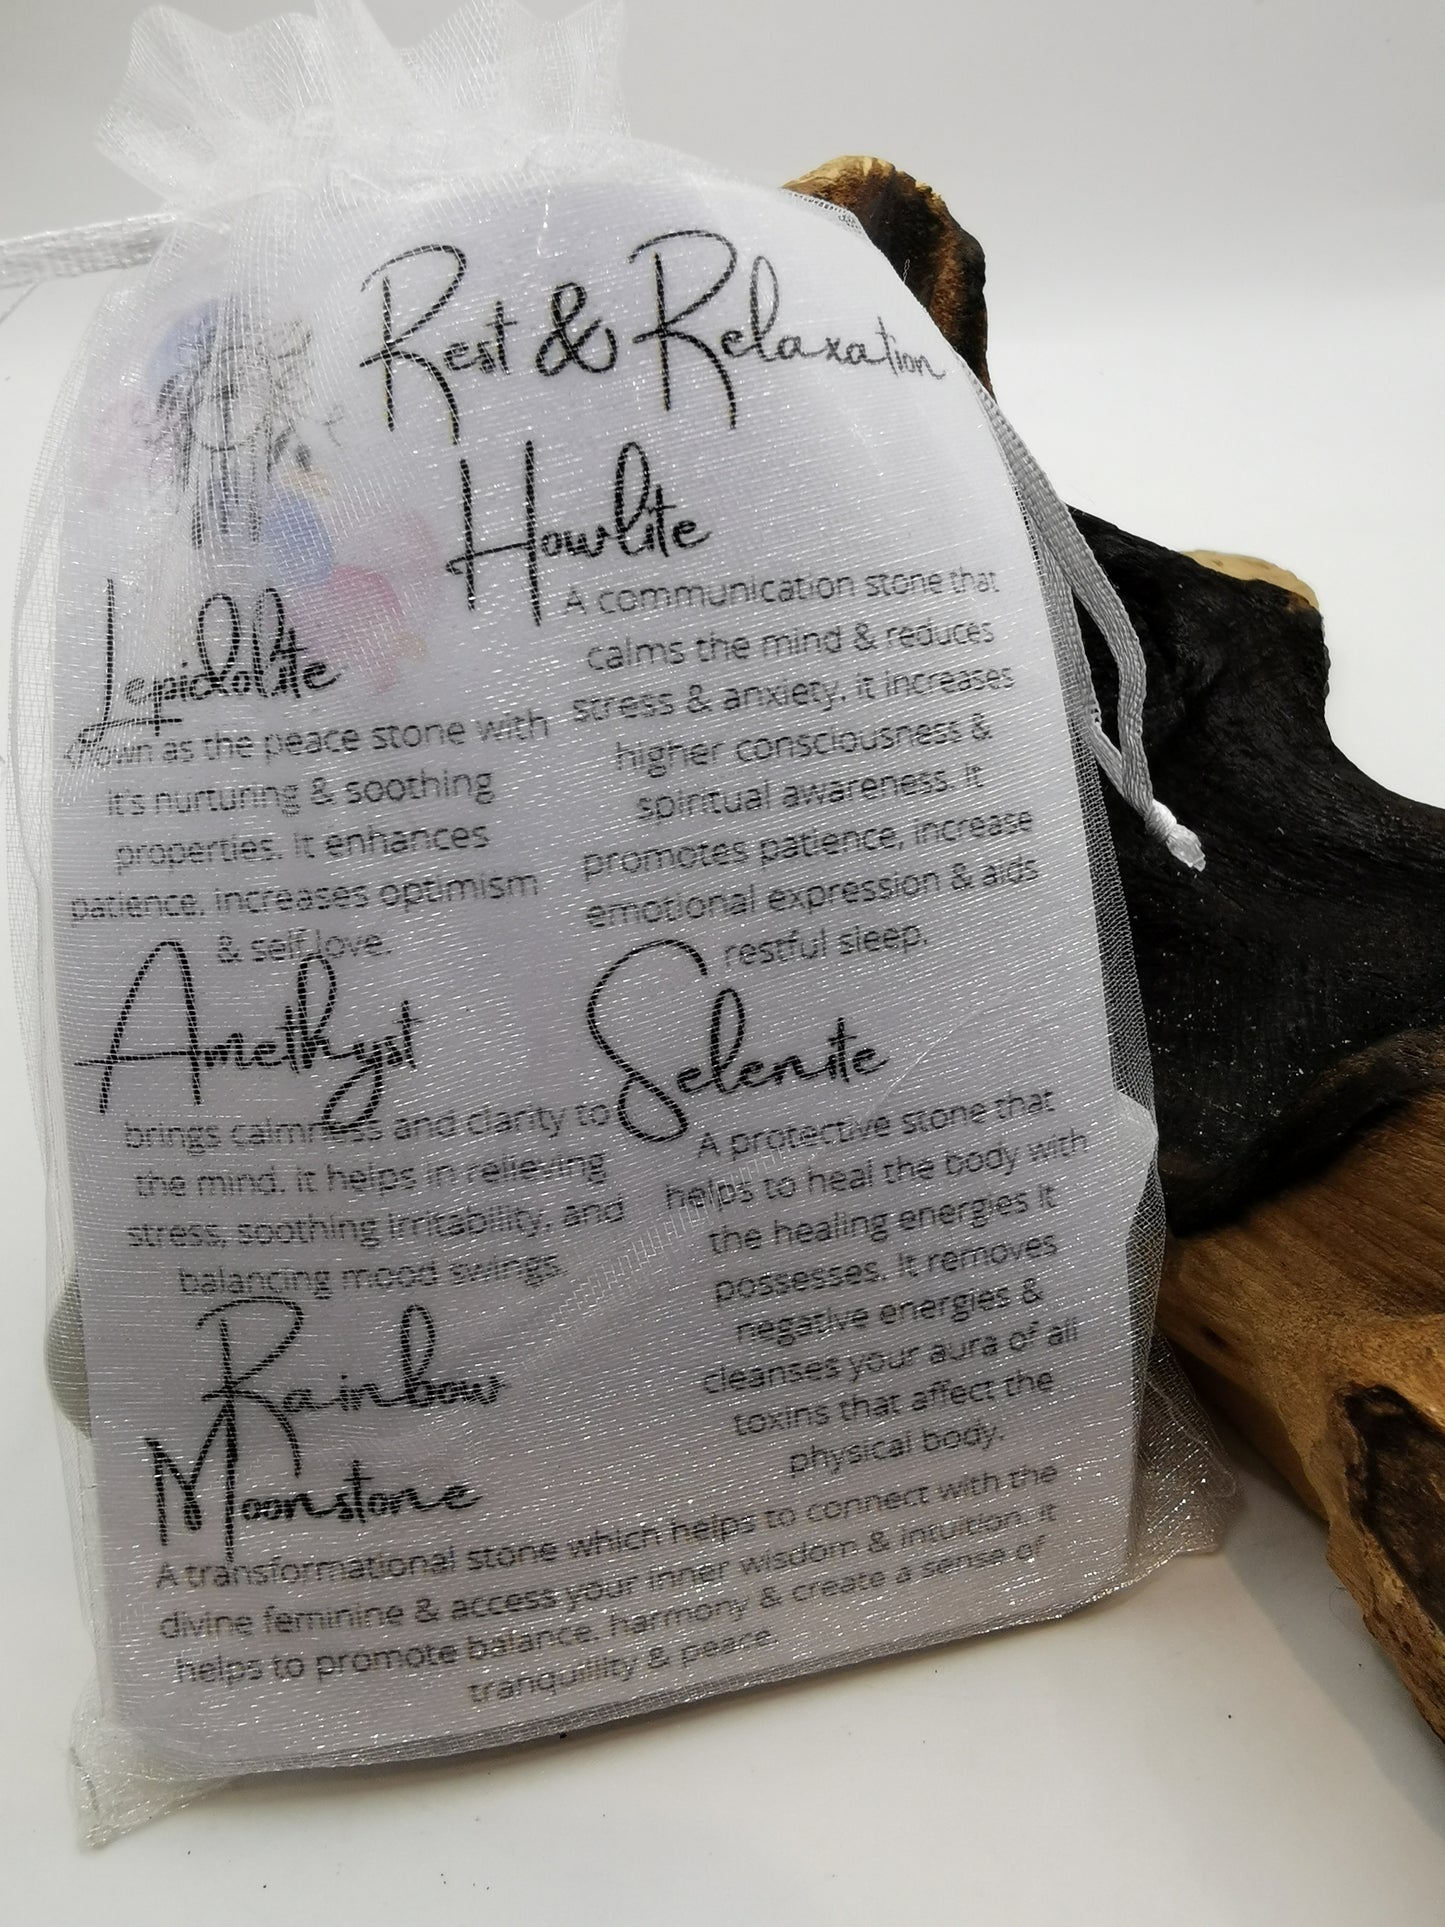 Rest & Relaxation
Howlite
A communication stone that
calms the mind & reduces
stress & anxiety. it increases
higher consciousness &
spiritual awareness. It
promotes patience, increase
emotional expression & aids
restful sleep.
Lepidolite
known as the peace stone with
it's nurturing & soothing
properties. It enhances
patience, increases optimism
& self love.
Amethyst
brings calmness and clarity to
the mind. It helps in relieving
stress, soothing irritability, and
balancing mood swings.
Selenite
A protective stone that
helps to heal the body with
the healing energies it
possesses. It removes
negative energies &
cleanses your aura of all
toxins that affect the
physical body.
Rainbow
Moonstone
A transformational stone which helps to connect with the
divine feminine & access your inner wisdom & intuition. It
helps to promote balance. harmony & create a sense of
tranquillity & peace.